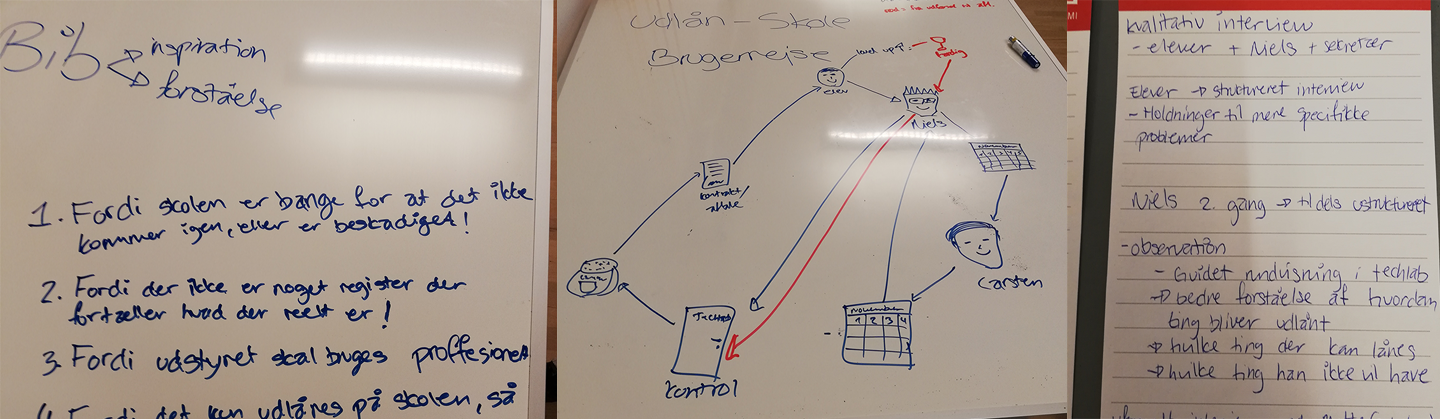 Bib
inspiration
forståelse
1. Fordi skolen er bange for at det ikke
kommer igen, eller er beskadiget!
2. Fordi der ikke er noget register der
fortæller hvad der reelt er!
3. Fordi udstyret skal bruges proffesionelt
4. Fordi det kun udlånes på skolen, så
Udlån - Skole
Brugerrejse
level up?
færdig
elev
Niels
november
1 2 3 4 5
kontrakt/
aftale
Carsten
Techlab
kontrol
november
1 2 3 4
MI
kvalitativ interview
- elever + Niels + sekretær
Elever → struktureret interview
- Holdninger til mere specifikke
problemer
Niels 2. gang → til dels ustruktureret
- observation
- Guidet rundvisning i techlab
→ bedre forståelse af hvordan
ting bliver udlånt
→ hvilke ting der kan lånes
→ hvilke ting han ikke vil have